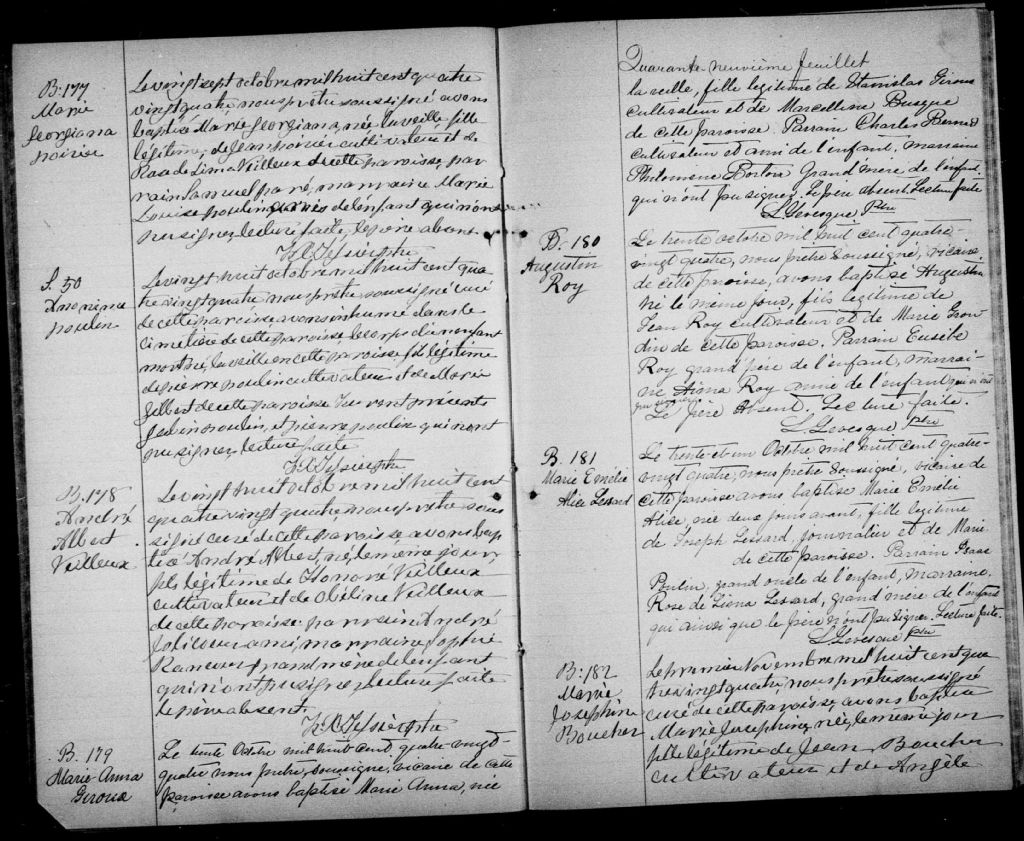 B. 177
Marie
Georgiana
poirier
Le vingt sept octobre mil huit cent quatre
vingt quatre nous prêtre soussigné avons
baptisé Marie Georgiana, née la veille, fille
légitime, de Jean poirier cultivateur et de
Rose de Lima Veilleux de cette paroisse, par
rain Samuel paré, marraine Marie
Louise poulin de l'enfant qui n'ont
pu signer, lecture faite, le père absent
ptre
S. 50
Anonime
poulin
Le vingt huit octobre mil huit cent qua
tre vingt quatre nous prêtre soussigné curé
de cette paroisse avons inhumé dans le
cimetière de cette paroisse le corps d'un enfant
mort né, la veille en cette paroisse fils légitime
de pierre poulin cultivateur et de Marie
Gilbert de cette paroisse Furent présents
poulin, et pierre poulin qui n'ont
pu signer, lecture faite
ptre
B. 178
André
Albert
Veilleux
Le vingt huit octobre mil huit cent
quatre vingt quatre nous prêtre sous
signé curé de cette paroisse avons bap
tisé André Albert, né, le meme jour,
fils légitime de Honoré Veilleux
cultivateur et de Obéline Veilleux
de cette paroisse parrain André
Jolicoeur ami, marraine Sophie
Rancourt grand mère de l'enfant
qui n'ont pu signer, lecture faite
le père absent.
ptre
B. 179
Marie Anna
Giroux
Le trente Octobre mil huit cent quatre vingt
quatre nous pretre, soussigné, vicaire de cette
paroisse avons baptisé Marie Anna, née
Quarante-neuvième feuillet
la veille, fille legitime de Stanislas Giroux
cultivateur et de Marcelline Busque
de cette paroisse. Parrain Charles Bernard
cultivateur et ami de l'enfant, marraine
Philomene grand mère de l'enfant
qui n'ont pu signer. Le père absent Lecture faite
L. Levesque Ptre
B. 180
Augustin
Roy
Le trente octobre mil huit cent quatre-
vingt quatre, nous prêtre soussigné, vicaire
de cette paroisse, avons baptisé Augustin
né le même jour, fils legitime de
Jean Roy cultivateur et de Marie Gron
din de cette paroisse. Parrain Eusèbe
Roy grand père de l'enfant, marrai-
ne Roy amie de l'enfant qui n'ont
pu signer
Le père absent. Lecture faite.
L. Levesque Ptre
B. 181
Marie Emélie
Alice Lessard
Le trente et un Octobre mil huit cent quatre-
vingt quatre, nous prêtre soussigné, vicaire de
cette paroisse avons baptisé Marie Emélie
Alice, née deux jours avant, fille legitime
de Joseph Lessard, journalier et de Marie
de cette paroisse. Parrain Isaac
Poulin, grand oncle de l'enfant, marraine
Rose de Lima Lessard, grand mère de l'enfant
qui ainsi que le père n'ont pu signer. Lecture faite.
L. Levesque Ptre
B. 182
Marie
Josephine
Boucher
Le premier Novembre mil huit cent qua
tre vingt quatre, nous prêtre soussigné
curé de cette paroisse, avons baptisé
Marie Josephine, née, le meme jour
fille légitime de Jean Boucher
cultivateur et de Angèle